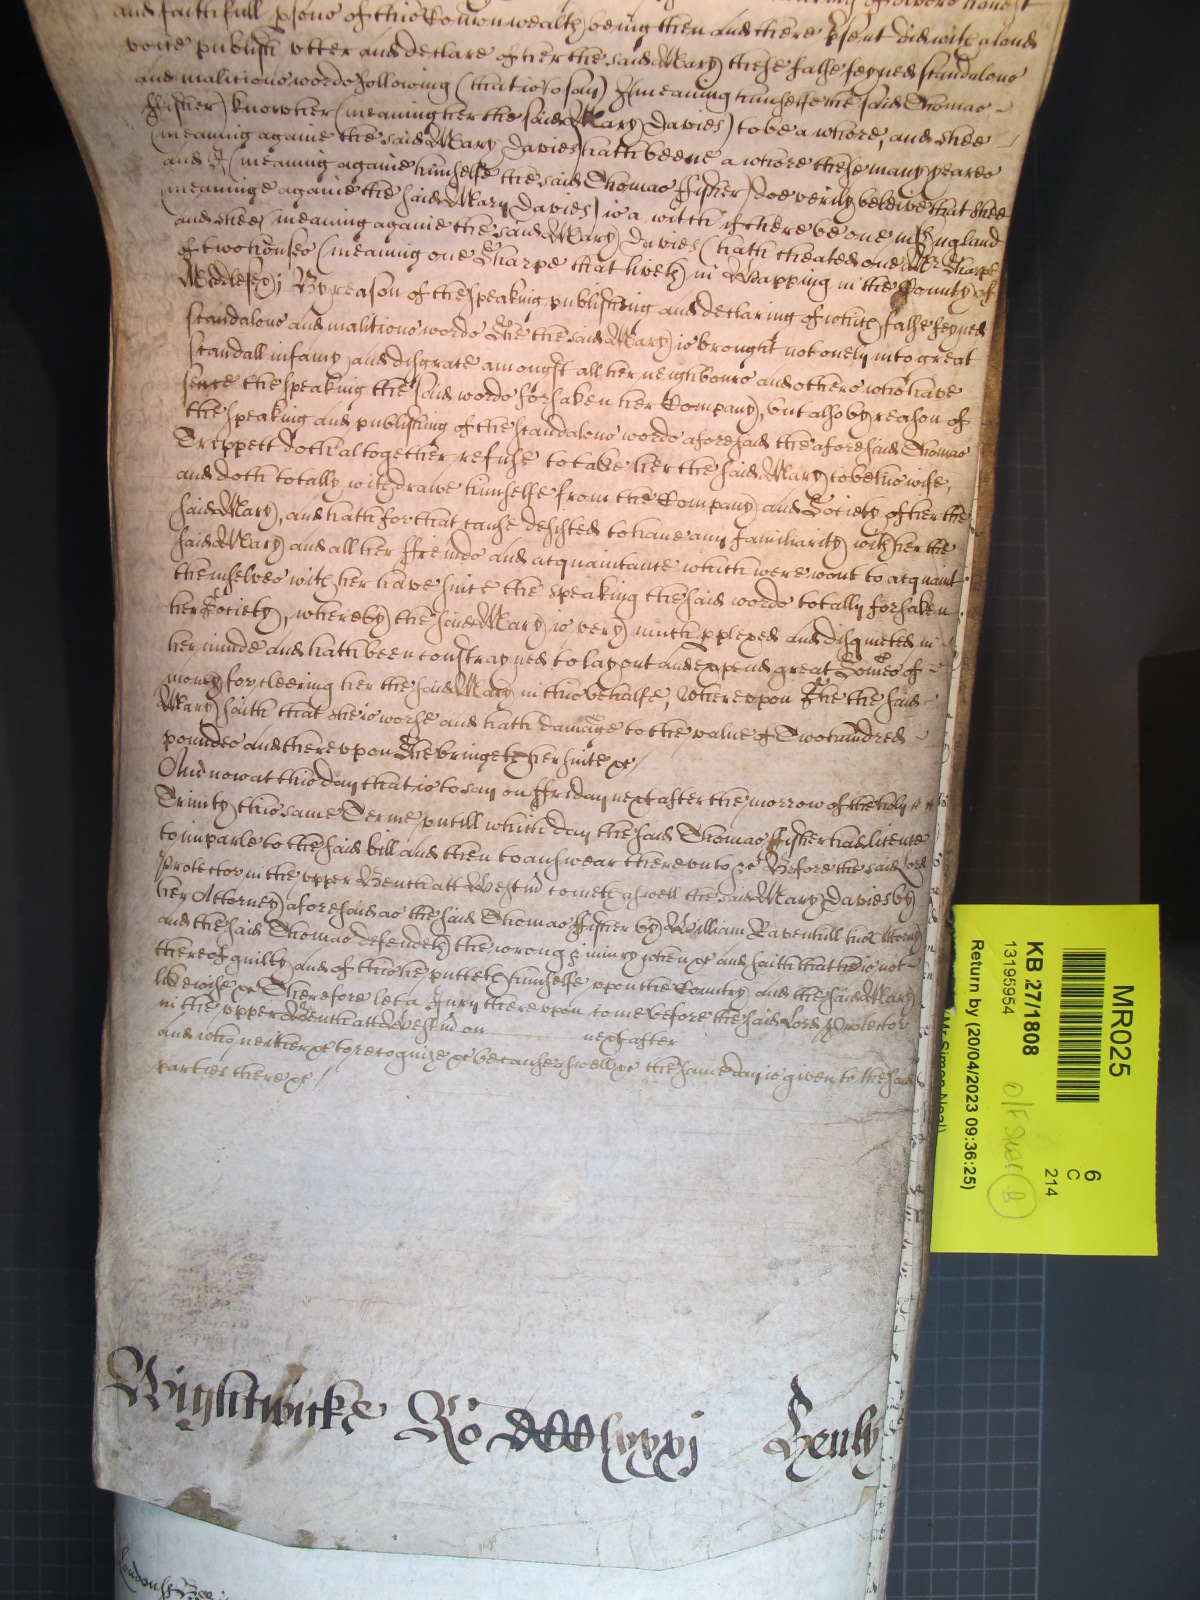 and faithfull psons of this Comonwealth being then and there psent did with a loud
voice publish vtter and declare of her the said Mary these false feyned scandalous
and malitious words following (that is to say) I (meaning himselfe the said Thomas
ffisher) know her (meaning her the said Mary Davies) to be a whore, and shee
(meaning againe the said Mary Davies) hath beene a whore these many yeares
and I (meaning againe himselfe the said Thomas ffisher) doe verily beleive that shee
(meaninge againe the said Mary Davies) is a witch if there be one in England
and shee (meaning againe the said Mary Davies) hath cheated one Mr Sharpe
of two houses (meaning one Sharpe that liveth in Wapping in the County of
Middlesex); By reason of the speaking publishing and declaring of which false feyned
scandalous and malitious words Shee the said Mary is brought not onely into great
scandall infamy and disgrace amongst all her neighbours and others who have
since the speaking the said words forsaken her Company, but also by reason of
the speaking and publishing of the scandalous words aforesaid the aforesaid Thomas
Trippett doth altogether refuse to take her the said Mary to be his wife,
and doth totally withdrawe himselfe from the Company and Society of her the
said Mary, and hath for that cause desisted to have any familiarity with her the
said Mary and all her ffreinds and acquaintance which were wont to acquaint
themselves with her have since the speaking the said words totally forsaken
her Society, whereby the said Mary is very much pplexed and disquieted in
her minde and hath been constrayned to lay out and expend great Somes of
money for cleering her the said Mary in this behalfe, Whereupon Shee the said
Mary saith that she is worse and hath damage to the value of Two hundred
poundes and thereupon Shee bringeth her suite &c
And now at this day that is to say on ffryday next after the morrow of the holy
Trinity this same Terme vntill which day the said Thomas ffisher had licence
to imparle to the said bill and then to answear thereunto &c Before the said Lord
Protector in the vpper Bench att Westm cometh aswell the said Mary Davies by
her Attorney aforesaid as the said Thomas ffisher by William Ravenhill his Attorny
and the said Thomas defendeth the wrong & iniury when &c and saith that he is not
thereof guilty and of this he putteth himselfe vpon the Country and the said Mary
likewise &c Therefore let a Jury thereupon come before the said Lord Protector
in the vpper Bench att Westm on next after
and who neither &c to recognize &c because aswell &c the same day is given to the said
parties there &c
Wightwicke Ro DCClxxxj Henly
MR025
KB 27/1808
13195954
6
C
214
O/F Shelf B
Return by (20/04/2023 09:36:25)
(Mr Simon Neal)